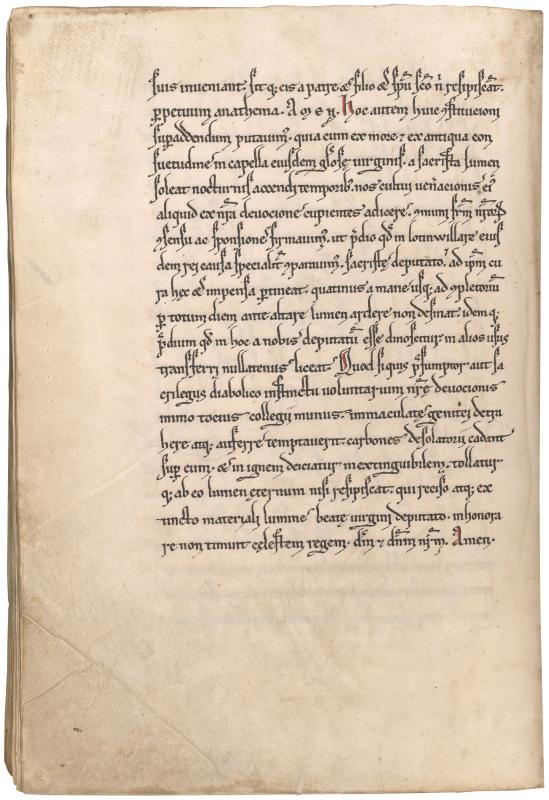 suis inveniant. sit q; eis a patre & filio & sp̄u sc̄o n̄ resipiscāt.
ꝑpetuum anathema. A M E N. Hoc autem huic ꝯstitucioni
supaddendum putauim᷒. quia cum ex more ⁊ ex antiqua con
suetudine in capella eiusdem gl̄ose uirginis. a sacrista lumen
soleat nocturnis accendi temporib᷒. nos cultui ueneracionis ei᷒
aliquid ex nr̄a deuocione cupientes adicere. ꝯmuni fr̄m nr̄oꝝ
ꝯsensu ac sponsione firmauim᷒. ut p̄dio qd̄ in lotinwillare eius
dem rei causa specialit̄ ꝯparauim᷒. sacriste deputato. ad ip̄m cu
ra hęc & impensa ꝑtineat. quatinus a mane usq; ad ꝯpletoriū
ꝑ totum diem ante altare lumen ardere non desinat. idem q;
p̄dium qd̄ in hoc a nobis deputatū esse dinoscitur. in alios usus
transferri nullatenus liceat. Quod siquis p̄sumptor aut sa
crilegus diabolico instinctu uoluntarium nr̄ę deuocionis
immo tocius collegii munus. immaculatę genit̄ci detra
here atq; auferre temptauerit. carbones desolatorii cadant
sup eum. & in ignem deiciatur inextinguibilem. tollatur
q; ab eo lumen ęternum nisi resipiscat. qui reciso atq; ex
tincto materiali lumine beatę uirgini deputato. inhonora
re non timuit cęlestem regem. dm̄ ⁊ dn̄m nr̄m. Amen.